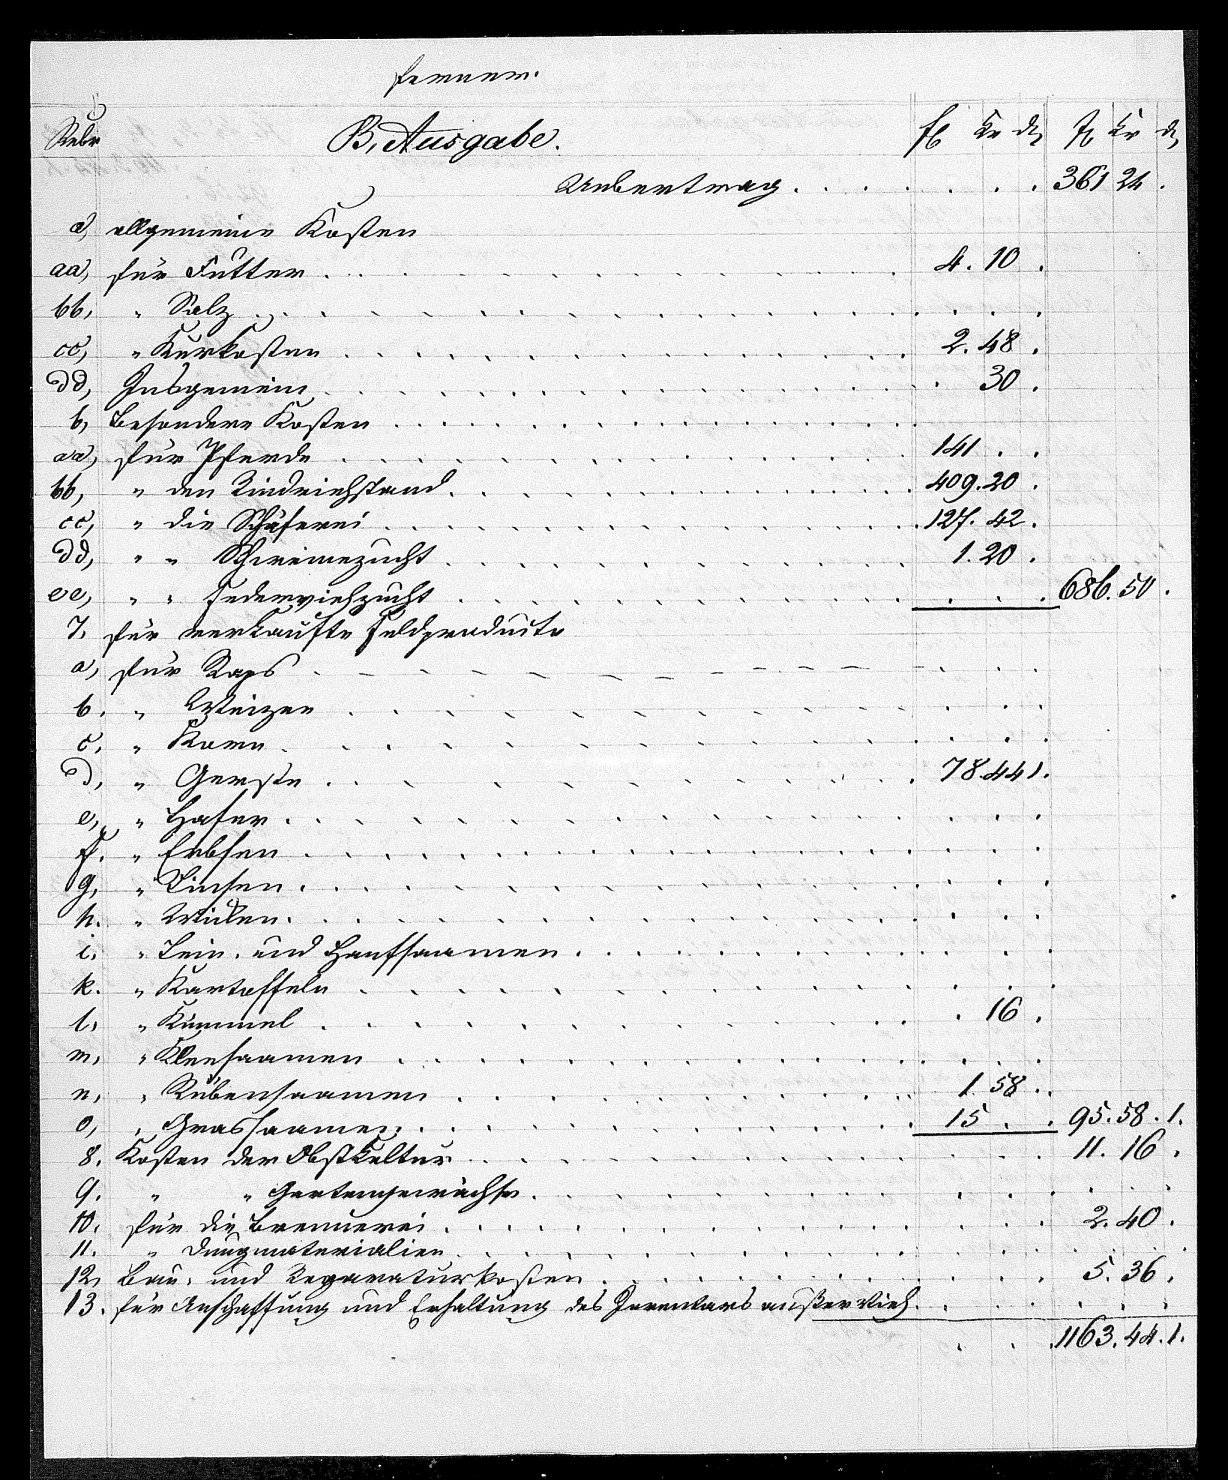 ferner.
Rubr B, Ausgabe. fl Kr dl fl Kr dl
Uebertrag . . . . . . . 361 24 .
a, allgemeine Kosten
aa, für Futter . . . . . 4. 10 .
bb, " Salz . . . . .
cc, " Kurkosten . . . . . 2. 48 .
dd, Insgemein . . . . . 30 .
b, besondere Kosten . . . . .
aa, für Pferde . . . . . 141 . .
bb, " den Rindviehstand . . . . . 409. 20 .
cc, " die Schäferei . . . . . 127. 42 .
dd, " " Schweinezucht . . . . . 1. 20 .
ee, " " Federviehzucht . . . . . 686. 50 .
7. für verkaufte Feldproducte
a, für Raps . . . . .
b. " Weizen . . . . .
c. " Korn . . . . .
d, " Gerste . . . . . 78. 44 1.
e, " Hafer . . . . .
f. " Erbsen . . . . .
g, " Linsen . . . . .
h. " Wicken . . . . .
i. " Lein- und Hanfsaamen . . . . .
k. " Kartoffeln . . . . .
l. " Kümmel . . . . . 16 .
m, " Kleesaamen . . . . .
n, " Rübensaamen . . . . . 1 58 .
o, " Grassaamen . . . . . 15 . . 95. 58 . 1.
8. Kosten der Obstkultur . . . . . 11. 16 .
9. " " Gartengewächse . . . . .
10. für die Brennerei . . . . . 2. 40 .
11. " Dungmaterialien . . . . .
12, Bau- und Reparaturkosten . . . . . 5. 36 .
13. für Anschaffung und Erhaltung des Inventars außer Vieh . . . . .
1163. 44. 1.